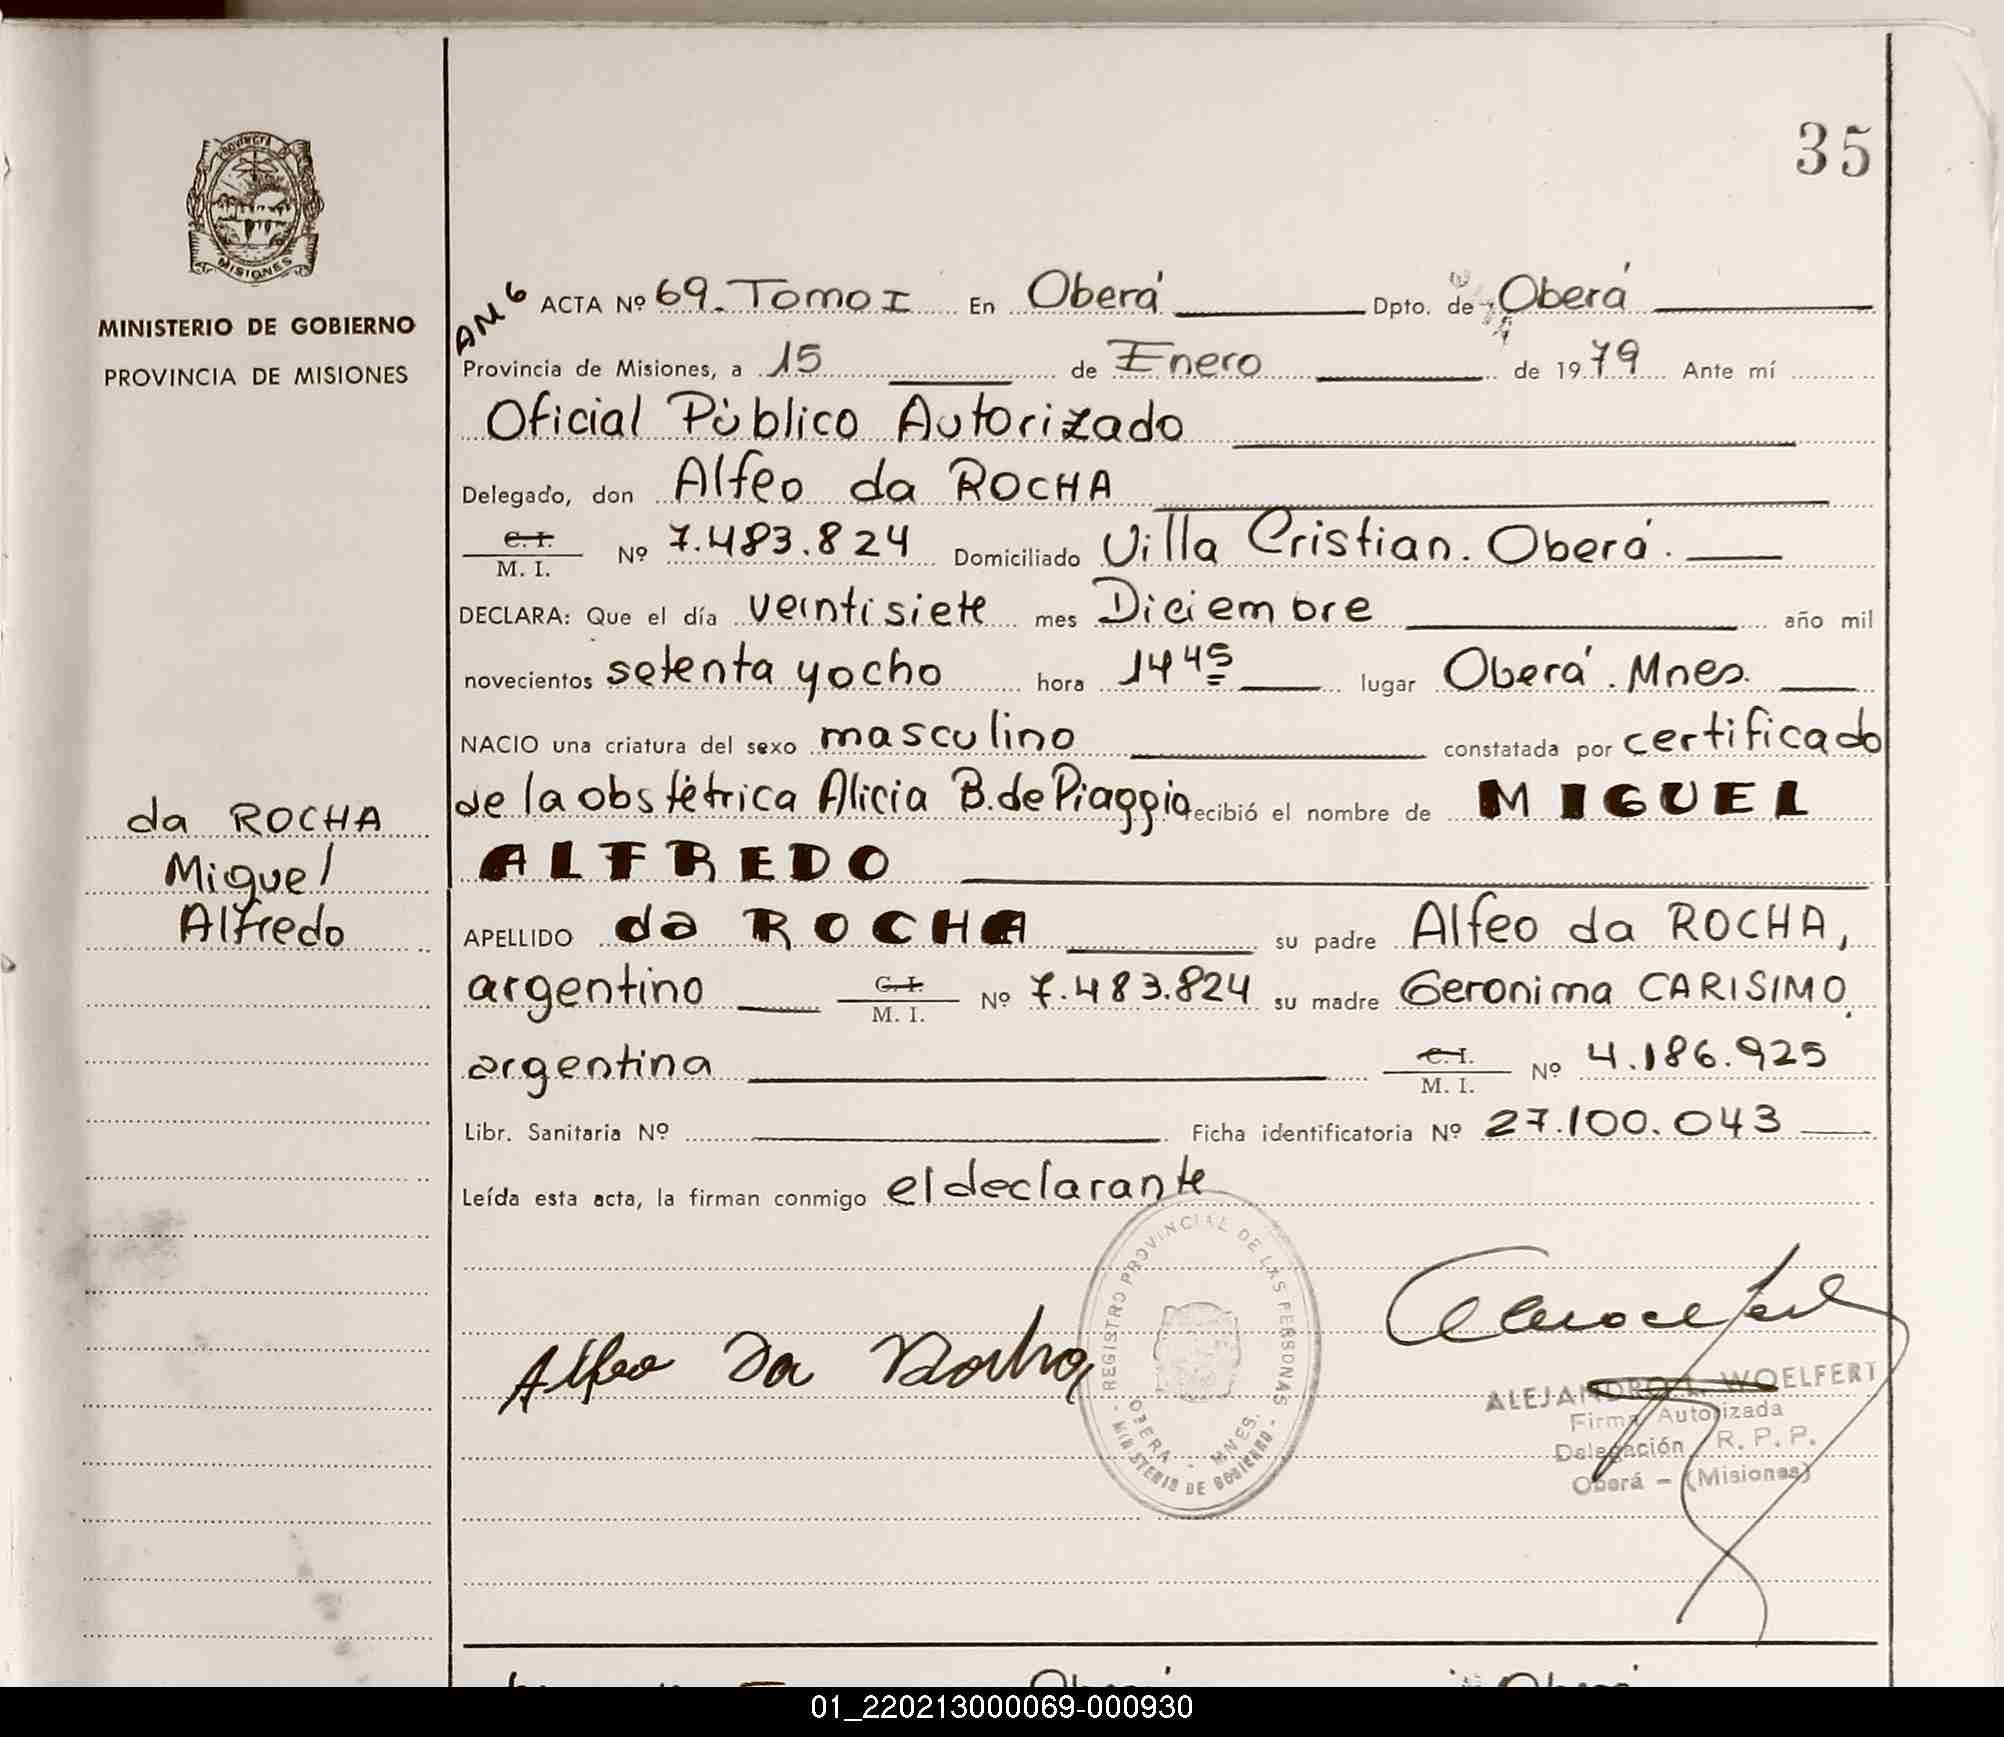 35
PROVINCIA
MISIONES
MINISTERIO DE GOBIERNO
PROVINCIA DE MISIONES
AM6 ACTA Nº 69. Tomo I En Oberá Dpto. de Oberá
Provincia de Misiones, a 15 de Enero de 1979 Ante mí
Oficial Público Autorizado
Delegado, don Alfeo da ROCHA
C. I. M. I. Nº 7.483.824 Domiciliado Villa Cristian. Oberá.
DECLARA: Que el día veintisiete mes Diciembre año mil
novecientos setenta y ocho hora 14 45 lugar Oberá. Mnes.
NACIO una criatura del sexo masculino constatada por certificado
de la obstétrica Alicia B. de Piaggio recibió el nombre de MIGUEL
ALFREDO
da ROCHA
Miguel
Alfredo
APELLIDO da ROCHA su padre Alfeo da ROCHA,
argentino C. I. M. I. Nº 7.483.824 su madre Geronima CARISIMO,
argentina C. I. M. I. Nº 4.186.925
Libr. Sanitaria Nº Ficha identificatoria Nº 27.100.043
Leída esta acta, la firman conmigo el declarante
Alfeo Da Rocha
REGISTRO PROVINCIAL DE LAS PERSONAS
OBERA - MNES.
MINISTERIO DE GOBIERNO
ALEJANDRO L. WOELFERT
Firma Autorizada
Delegación R. P. P.
Oberá - (Misiones)
01_220213000069-000930